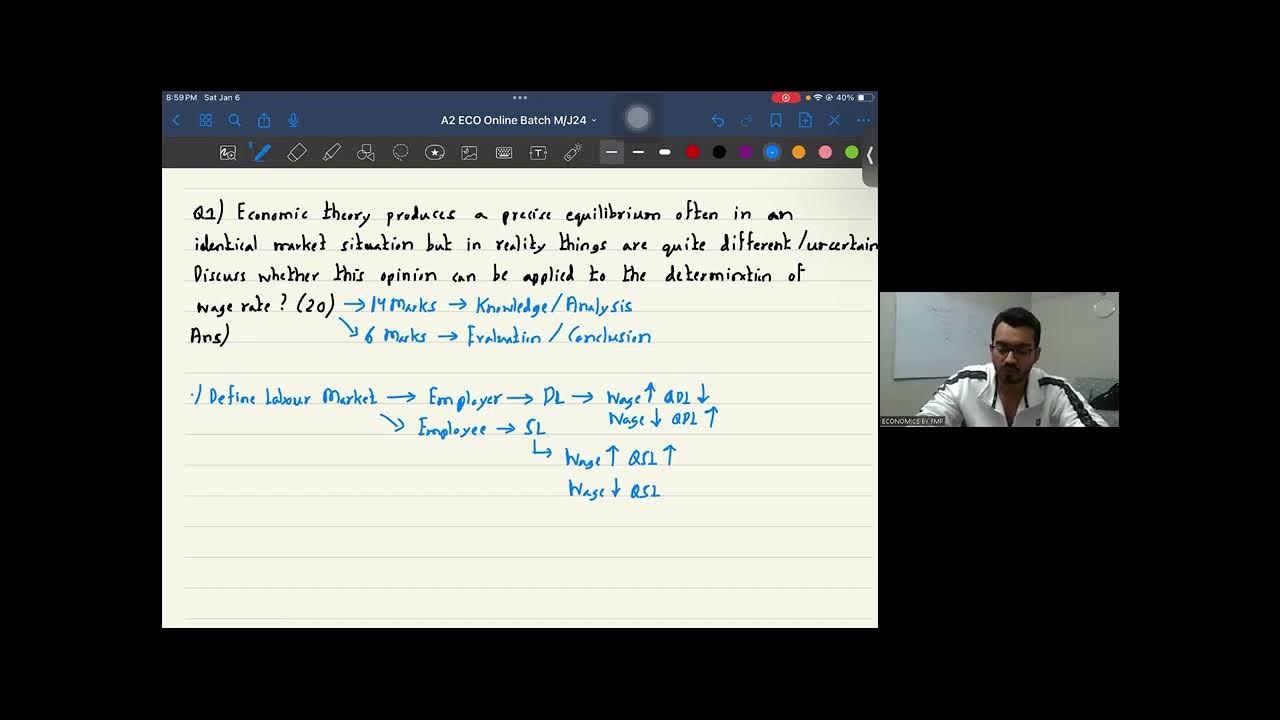 8:59 PM Sat Jan 6
40%
A2 ECO Online Batch M/J24
Q1) Economic theory produces a precise equilibrium often in an
identical market situation but in reality things are quite different/uncertain
Discuss whether this opinion can be applied to the determination of
wage rate? (20) → 14 Marks → Knowledge/Analysis
Ans) ↘ 6 Marks → Evaluation / Conclusion
·/ Define Labour Market → Employer → DL → Wage ↑ QDL ↓
Wage ↓ QDL ↑
↘ Employee → SL
↳ Wage ↑ QSL ↑
Wage ↓ QSL
ECONOMICS BY FMP